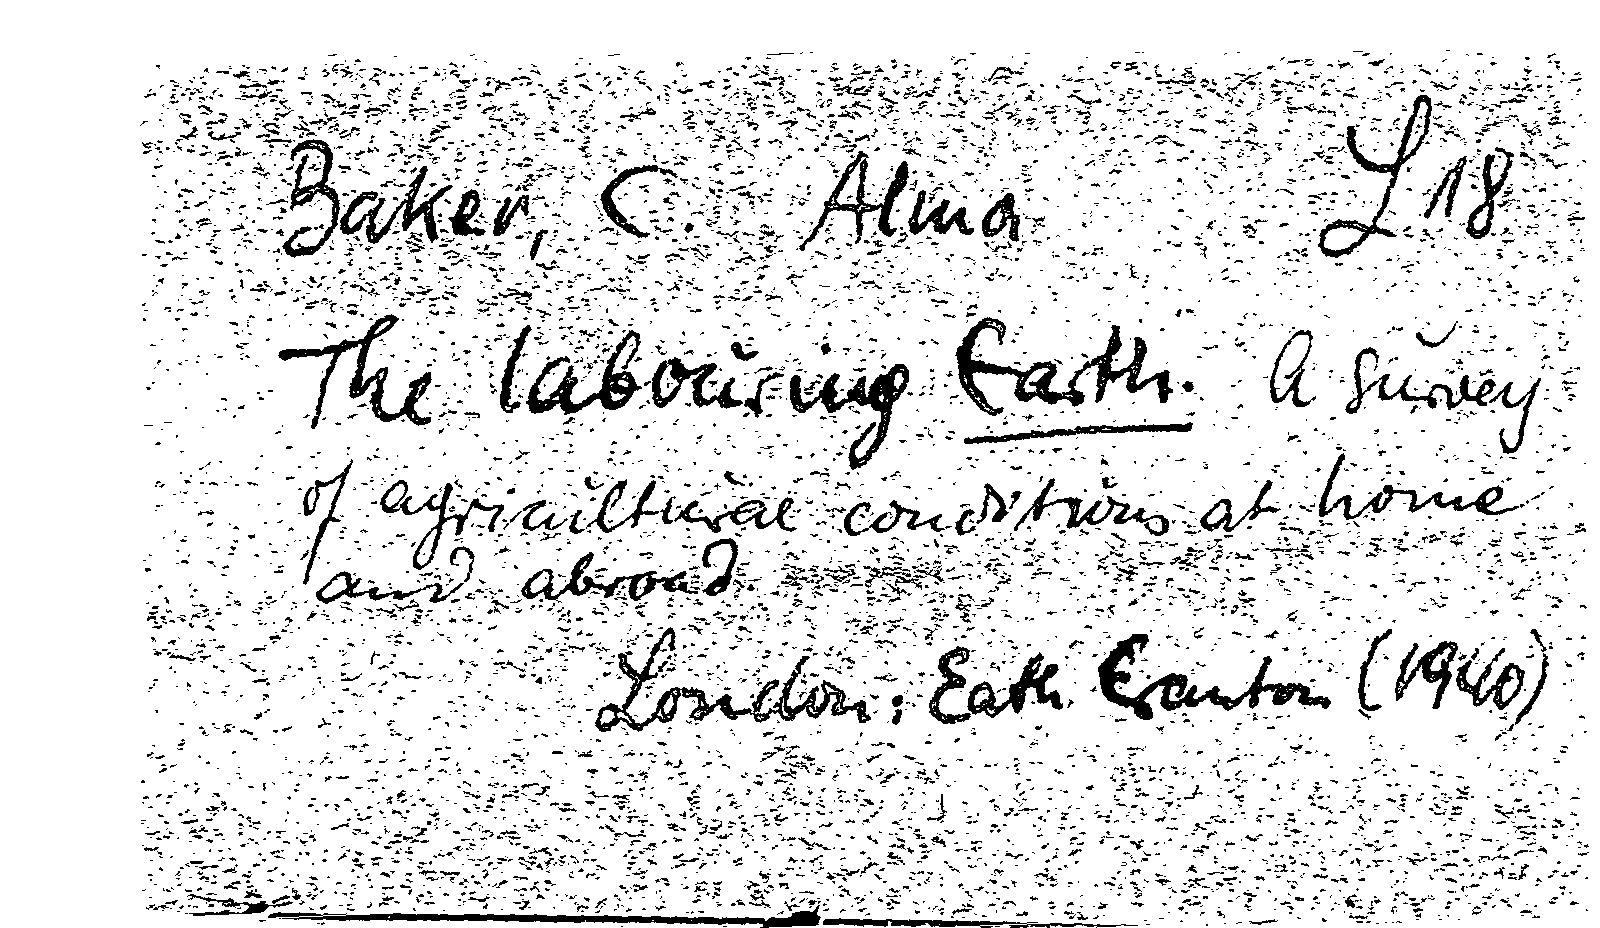 Baker, C. Alma L 18
The labouring Earth. A survey
of agricultural conditions at home
and abroad.
London: Eath Cranton (1940)